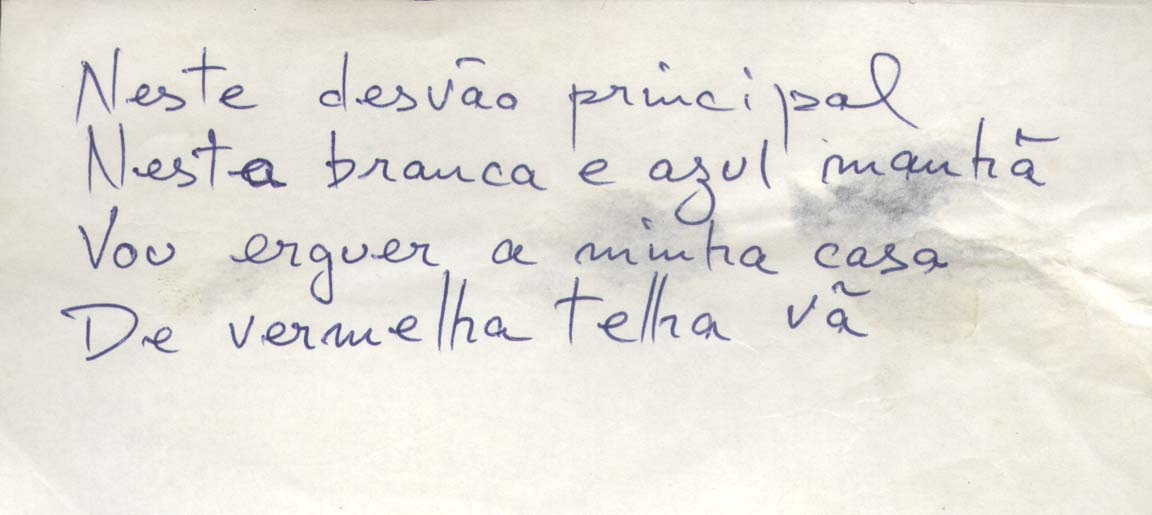 Neste desvão principal
Nesta branca e azul manhã
Vou erguer a minha casa
De vermelha telha vã